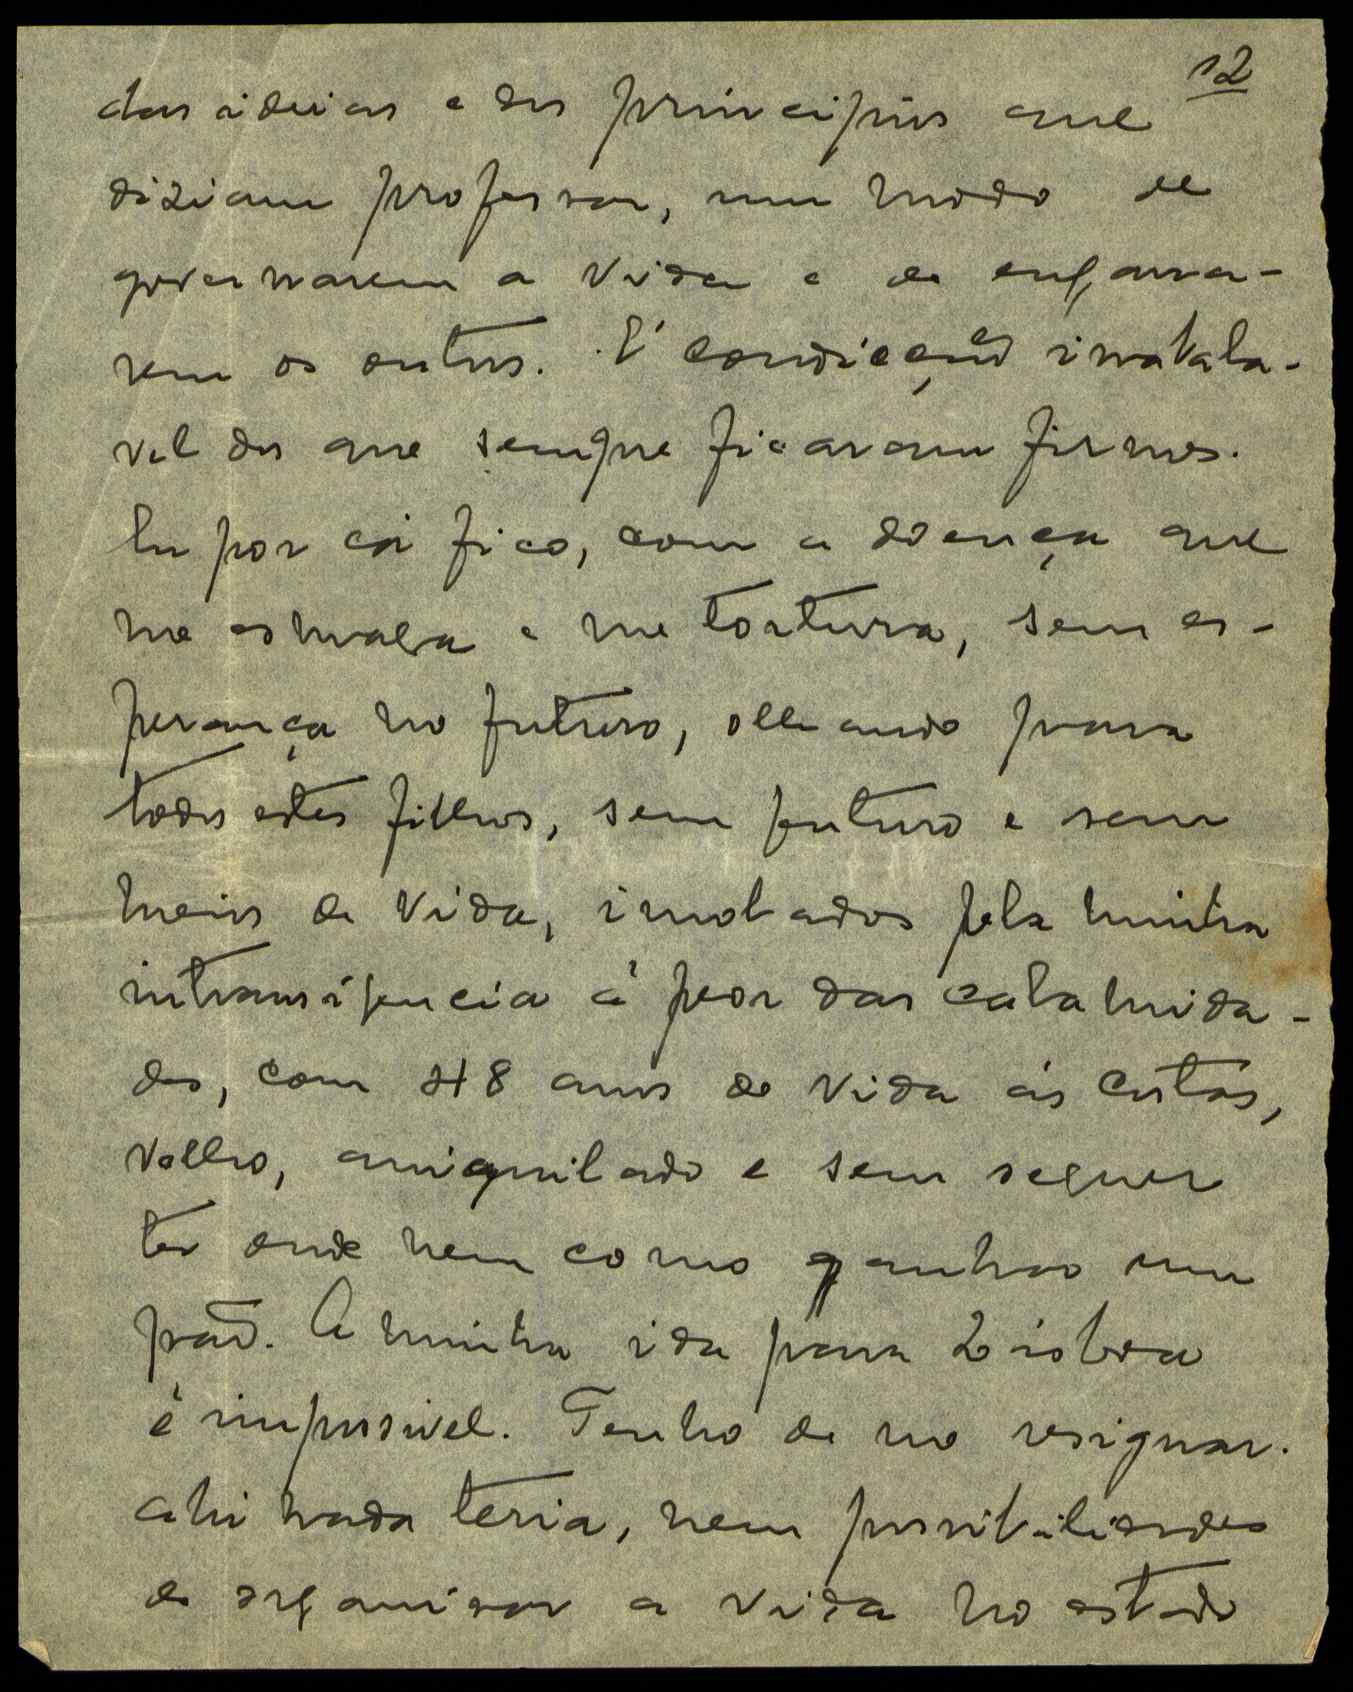 12
das ideias e dos principios que
diziam professar, um modo de
governarem a vida e de engana-
rem os outros. É condicção inabala-
vel dos que sempre ficaram firmes.
Eu por cá fico, com a doença que
me esmaga e me tortura, sem es-
perança no futuro, olhando para
todos estes filhos, sem futuro e sem
meios de vida, imolados pela minha
intransigencia á peor das calamida-
des, com 48 anos de vida ás costas,
velho, aniquilado e sem sequer
ter onde nem como ganhar um
pão. A minha ida para Lisboa
é impossivel. Tenho de me resignar.
Ahi nada teria, nem possibilidades
de organisar a vida no estado